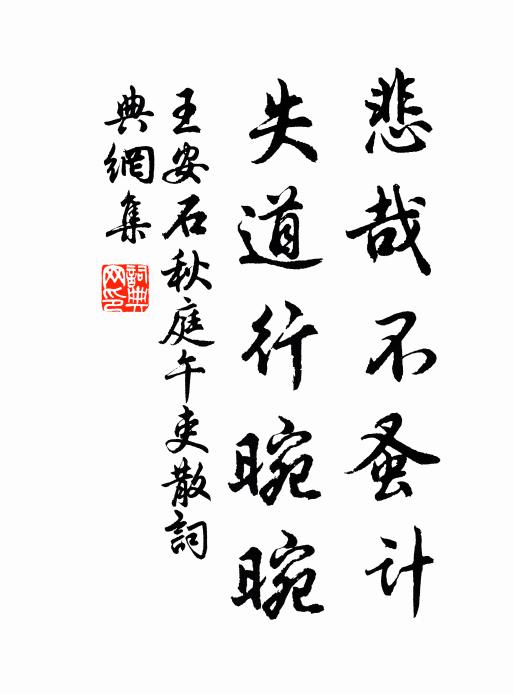 悲哉不蚤计
失道行晼晼
王安石秋庭午吏散詞
典網集
詞典网印